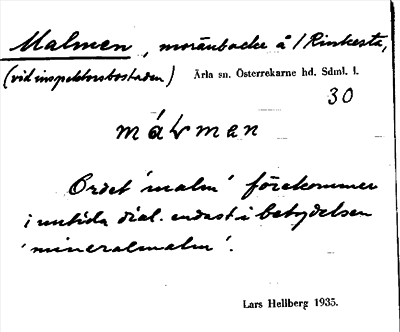 Malmen, moränbacke å /Rinkesta,
(vid inspektorsbostaden) Ärla sn. Österrekarne hd. Sdml. l.
30
málmen
Ordet 'malm' förekommer
i nutida dial. endast i betydelsen
'mineralmalm'.
Lars Hellberg 1935.